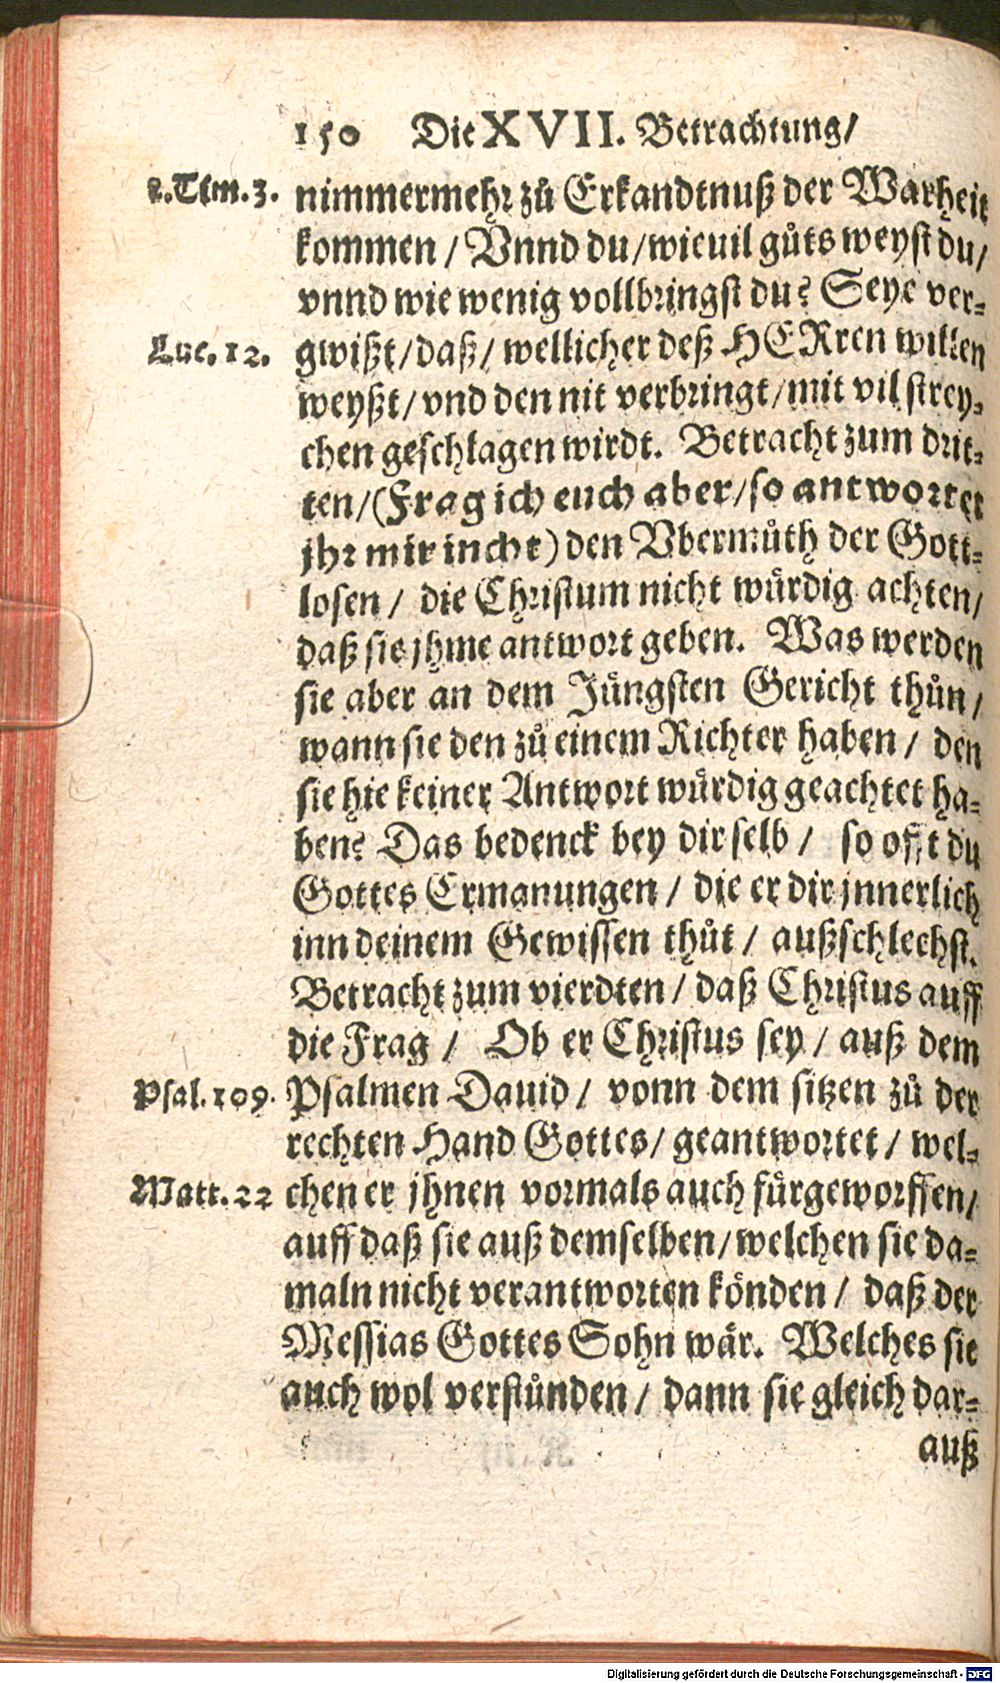 150 Die XVII. Betrachtung/
2.Tim.3. nimmermehr zů Erkandtnuß der Warheit
kommen / Vnnd du/wieuil gůts weyst du/
vnnd wie wenig vollbringst du? Seye ver-
Luc. 12. gwißt/daß/ wellicher deß HERren willen
weyßt/vnd den nit verbringt/mit vil strey-
chen geschlagen wirdt. Betracht zum drit-
ten/(Frag ich euch aber/so antwortet
jhr mir incht) den Vbermůth der Gott-
losen / die Christum nicht würdig achten/
daß sie jhme antwort geben. Was werden
sie aber an dem Jüngsten Gericht thůn/
wann sie den zů einem Richter haben / den
sie hie keiner Antwort würdig geachtet ha-
ben? Das bedenck bey dir selb / so offt du
Gottes Ermanungen / die er dir jnnerlich
inn deinem Gewissen thůt / außschlechst.
Betracht zum vierdten / daß Christus auff
die Frag / Ob er Christus sey / auß dem
Psal. 109. Psalmen Dauid / vonn dem sitzen zů der
rechten Hand Gottes/ geantwortet / wel-
Matt. 22 chen er jhnen vormals auch fürgeworffen/
auff daß sie auß demselben/welchen sie da-
maln nicht verantworten könden / daß der
Messias Gottes Sohn wär. Welches sie
auch wol verstůnden / dann sie gleich dar-
auß
Digitalisierung gefördert durch die Deutsche Forschungsgemeinschaft - DFG